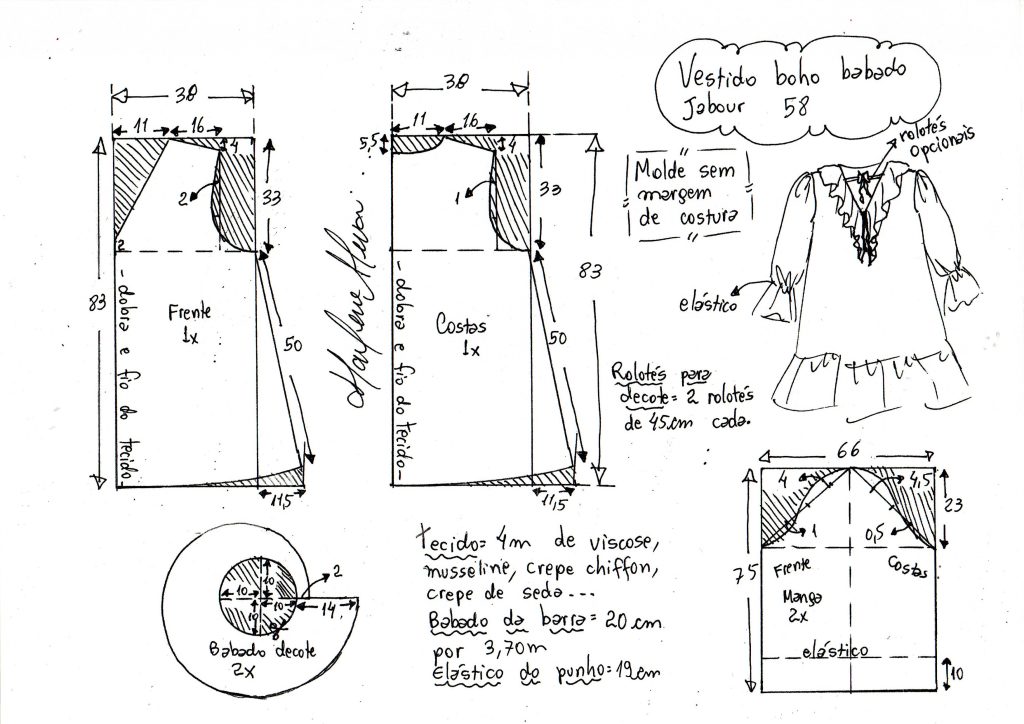 Vestido boho babado
Jabour 58
rolotés
opcionais
Molde sem
margem
de costura
elástico
Rolotés para
decote= 2 rolotés
de 45cm cada.
38
11
16
4
33
2
2
83
Frente
1x
50
- dobra e fio do tecido -
11,5
38
11
16
5,5
4
33
1
83
Costas
1x
50
- dobra e fio do tecido -
11,5
Marlene Mukai
66
4
4,5
23
1
0,5
75
Frente
Costas
Manga
2x
elástico
10
10
10
10
10
2
14
8
Babado decote
2x
tecido= 4m de viscose,
musseline, crepe chiffon,
crepe de seda...
Babado da barra= 20cm
por 3,70m
Elástico do punho=19cm